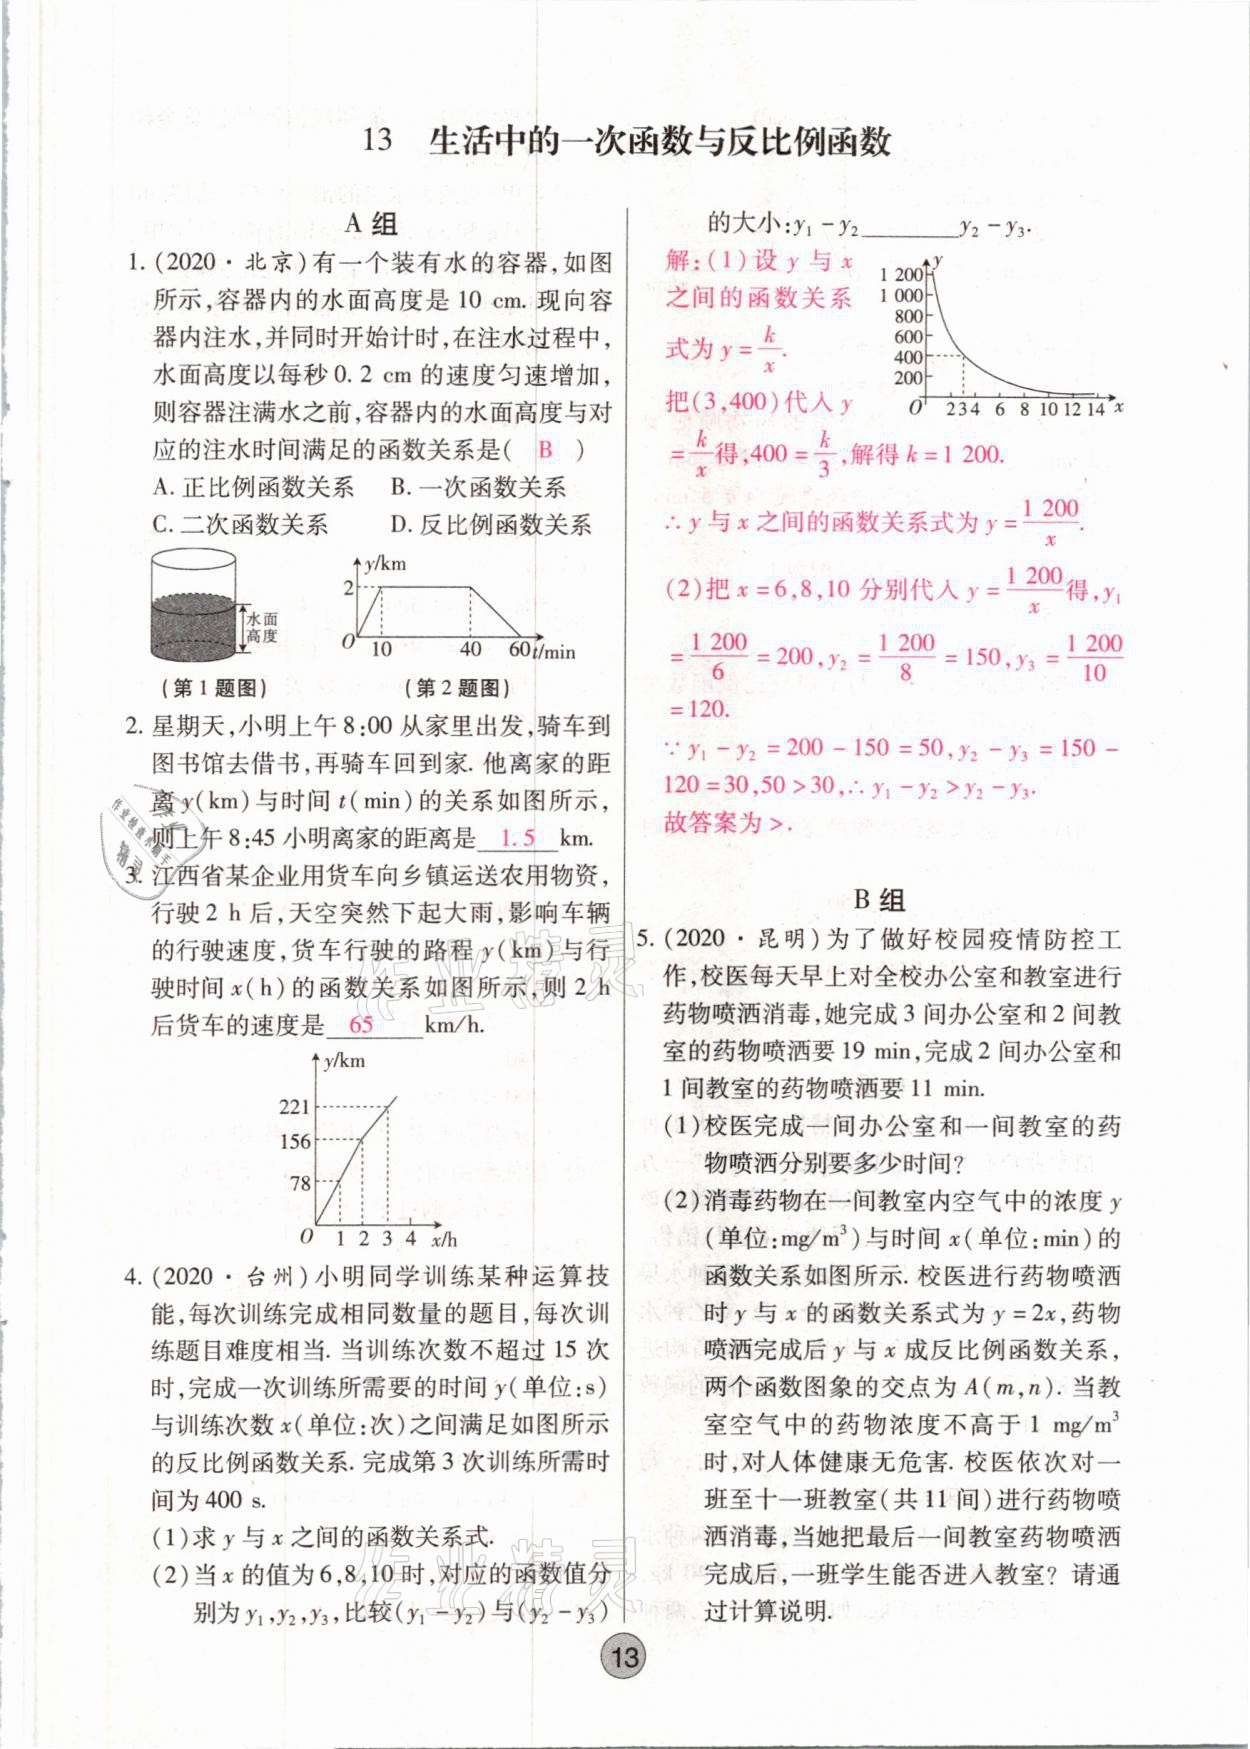 13 生活中的一次函数与反比例函数
A 组
1. (2020·北京)有一个装有水的容器,如图
所示,容器内的水面高度是 10 cm. 现向容
器内注水,并同时开始计时,在注水过程中,
水面高度以每秒 0. 2 cm 的速度匀速增加,
则容器注满水之前,容器内的水面高度与对
应的注水时间满足的函数关系是( B )
A. 正比例函数关系 B. 一次函数关系
C. 二次函数关系 D. 反比例函数关系
水面
高度
y/km
2
O 10 40 60 t/min
(第 1 题图) (第 2 题图)
2. 星期天,小明上午 8:00 从家里出发,骑车到
图书馆去借书,再骑车回到家. 他离家的距
离 y(km)与时间 t(min)的关系如图所示,
则上午 8:45 小明离家的距离是 1. 5 km.
3. 江西省某企业用货车向乡镇运送农用物资,
行驶 2 h 后,天空突然下起大雨,影响车辆
的行驶速度,货车行驶的路程 y(km)与行
驶时间 x(h)的函数关系如图所示,则 2 h
后货车的速度是 65 km/h.
y/km
221
156
78
O 1 2 3 4 x/h
4. (2020·台州)小明同学训练某种运算技
能,每次训练完成相同数量的题目,每次训
练题目难度相当. 当训练次数不超过 15 次
时,完成一次训练所需要的时间 y(单位:s)
与训练次数 x(单位:次)之间满足如图所示
的反比例函数关系. 完成第 3 次训练所需时
间为 400 s.
(1)求 y 与 x 之间的函数关系式.
(2)当 x 的值为 6,8,10 时,对应的函数值分
别为 y₁,y₂,y₃,比较(y₁－y₂)与(y₂－y₃)
的大小:y₁－y₂________y₂－y₃.
解:(1)设 y 与 x
之间的函数关系
式为 y＝k/x.
把(3,400)代入 y
＝k/x得,400＝k/3,解得 k＝1 200.
∴ y 与 x 之间的函数关系式为 y＝1 200/x.
(2)把 x＝6,8,10 分别代入 y＝1 200/x得,y₁
＝1 200/6＝200,y₂＝1 200/8＝150,y₃＝1 200/10
＝120.
∵ y₁－y₂＝200－150＝50,y₂－y₃＝150－
120＝30,50＞30,∴ y₁－y₂＞y₂－y₃.
故答案为＞.
y
1 200
1 000
800
600
400
200
O 2 3 4 6 8 10 12 14 x
B 组
5. (2020·昆明)为了做好校园疫情防控工
作,校医每天早上对全校办公室和教室进行
药物喷洒消毒,她完成 3 间办公室和 2 间教
室的药物喷洒要 19 min,完成 2 间办公室和
1 间教室的药物喷洒要 11 min.
(1)校医完成一间办公室和一间教室的药
物喷洒分别要多少时间?
(2)消毒药物在一间教室内空气中的浓度 y
(单位:mg/m³)与时间 x(单位:min)的
函数关系如图所示. 校医进行药物喷洒
时 y 与 x 的函数关系式为 y＝2x,药物
喷洒完成后 y 与 x 成反比例函数关系,
两个函数图象的交点为 A(m,n). 当教
室空气中的药物浓度不高于 1 mg/m³
时,对人体健康无危害. 校医依次对一
班至十一班教室(共 11 间)进行药物喷
洒消毒,当她把最后一间教室药物喷洒
完成后,一班学生能否进入教室? 请通
过计算说明.
13
作业精灵
作业精灵
作业检查小助手
精灵